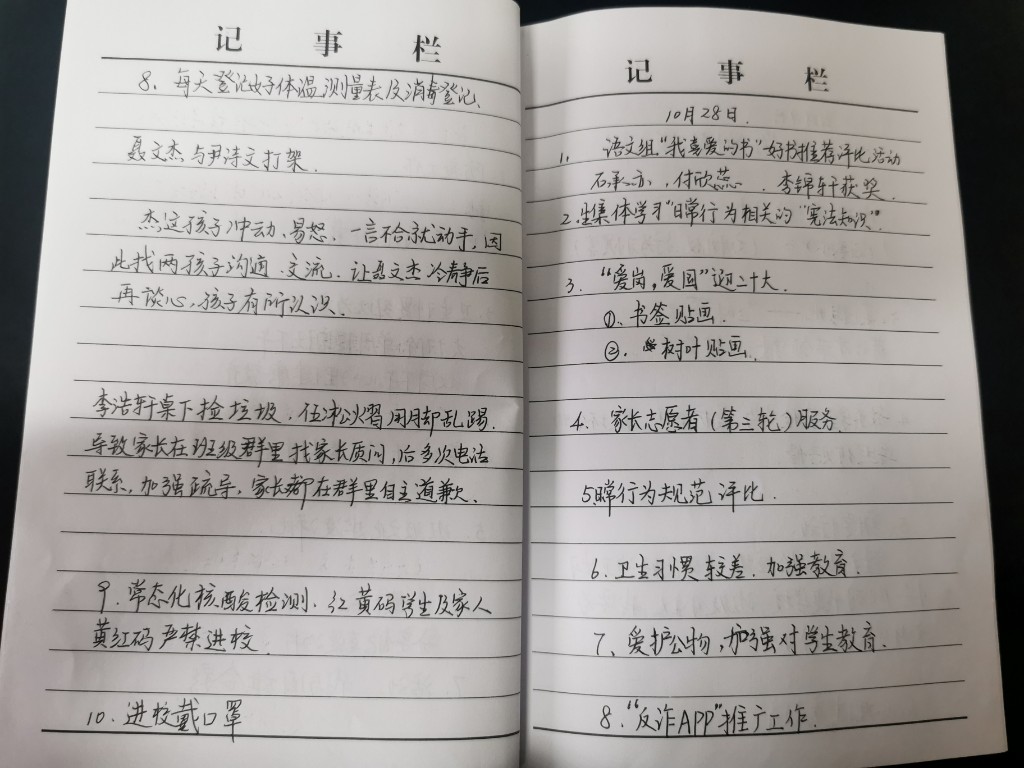 记事栏
8、每天登记好体温测量表及消毒登记、
聂文杰与尹诗文打架、
杰这孩子冲动、易怒、一言不合就动手，因
此找两孩子沟通、交流、让聂文杰冷静后
再谈心，孩子有所认识、
李浩轩桌下捡垃圾、伍 用脚乱踢、
导致家长在班级群里找家长质问，后多次电话
联系，加强疏导，家长都在群里自主道歉、
9、常态化核酸检测、红黄码学生及家人
黄红码严禁进校、
10、进校戴口罩
记事栏
10月28日、
1、语文组“我喜爱的书”好书推荐评比活动
石 ，付欣蕊、李锦轩获奖、
2、生集体学习“日常行为相关的“宪法知识”、
3、“爱岗，爱国”迎二十大、
①、书签贴画、
②、树叶贴画、
4、家长志愿者（第三轮）服务、
5、日常行为规范评比、
6、卫生习惯较差、加强教育、
7、爱护公物，加强对学生教育、
8、“反诈APP”推广工作、